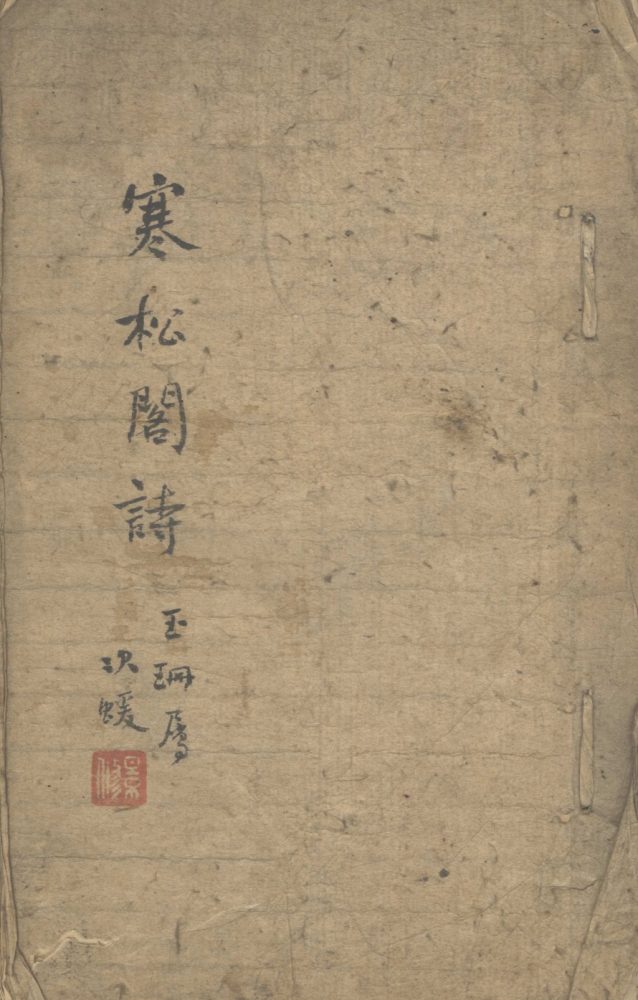 寒松閣詩
玉珊屬
次蝯